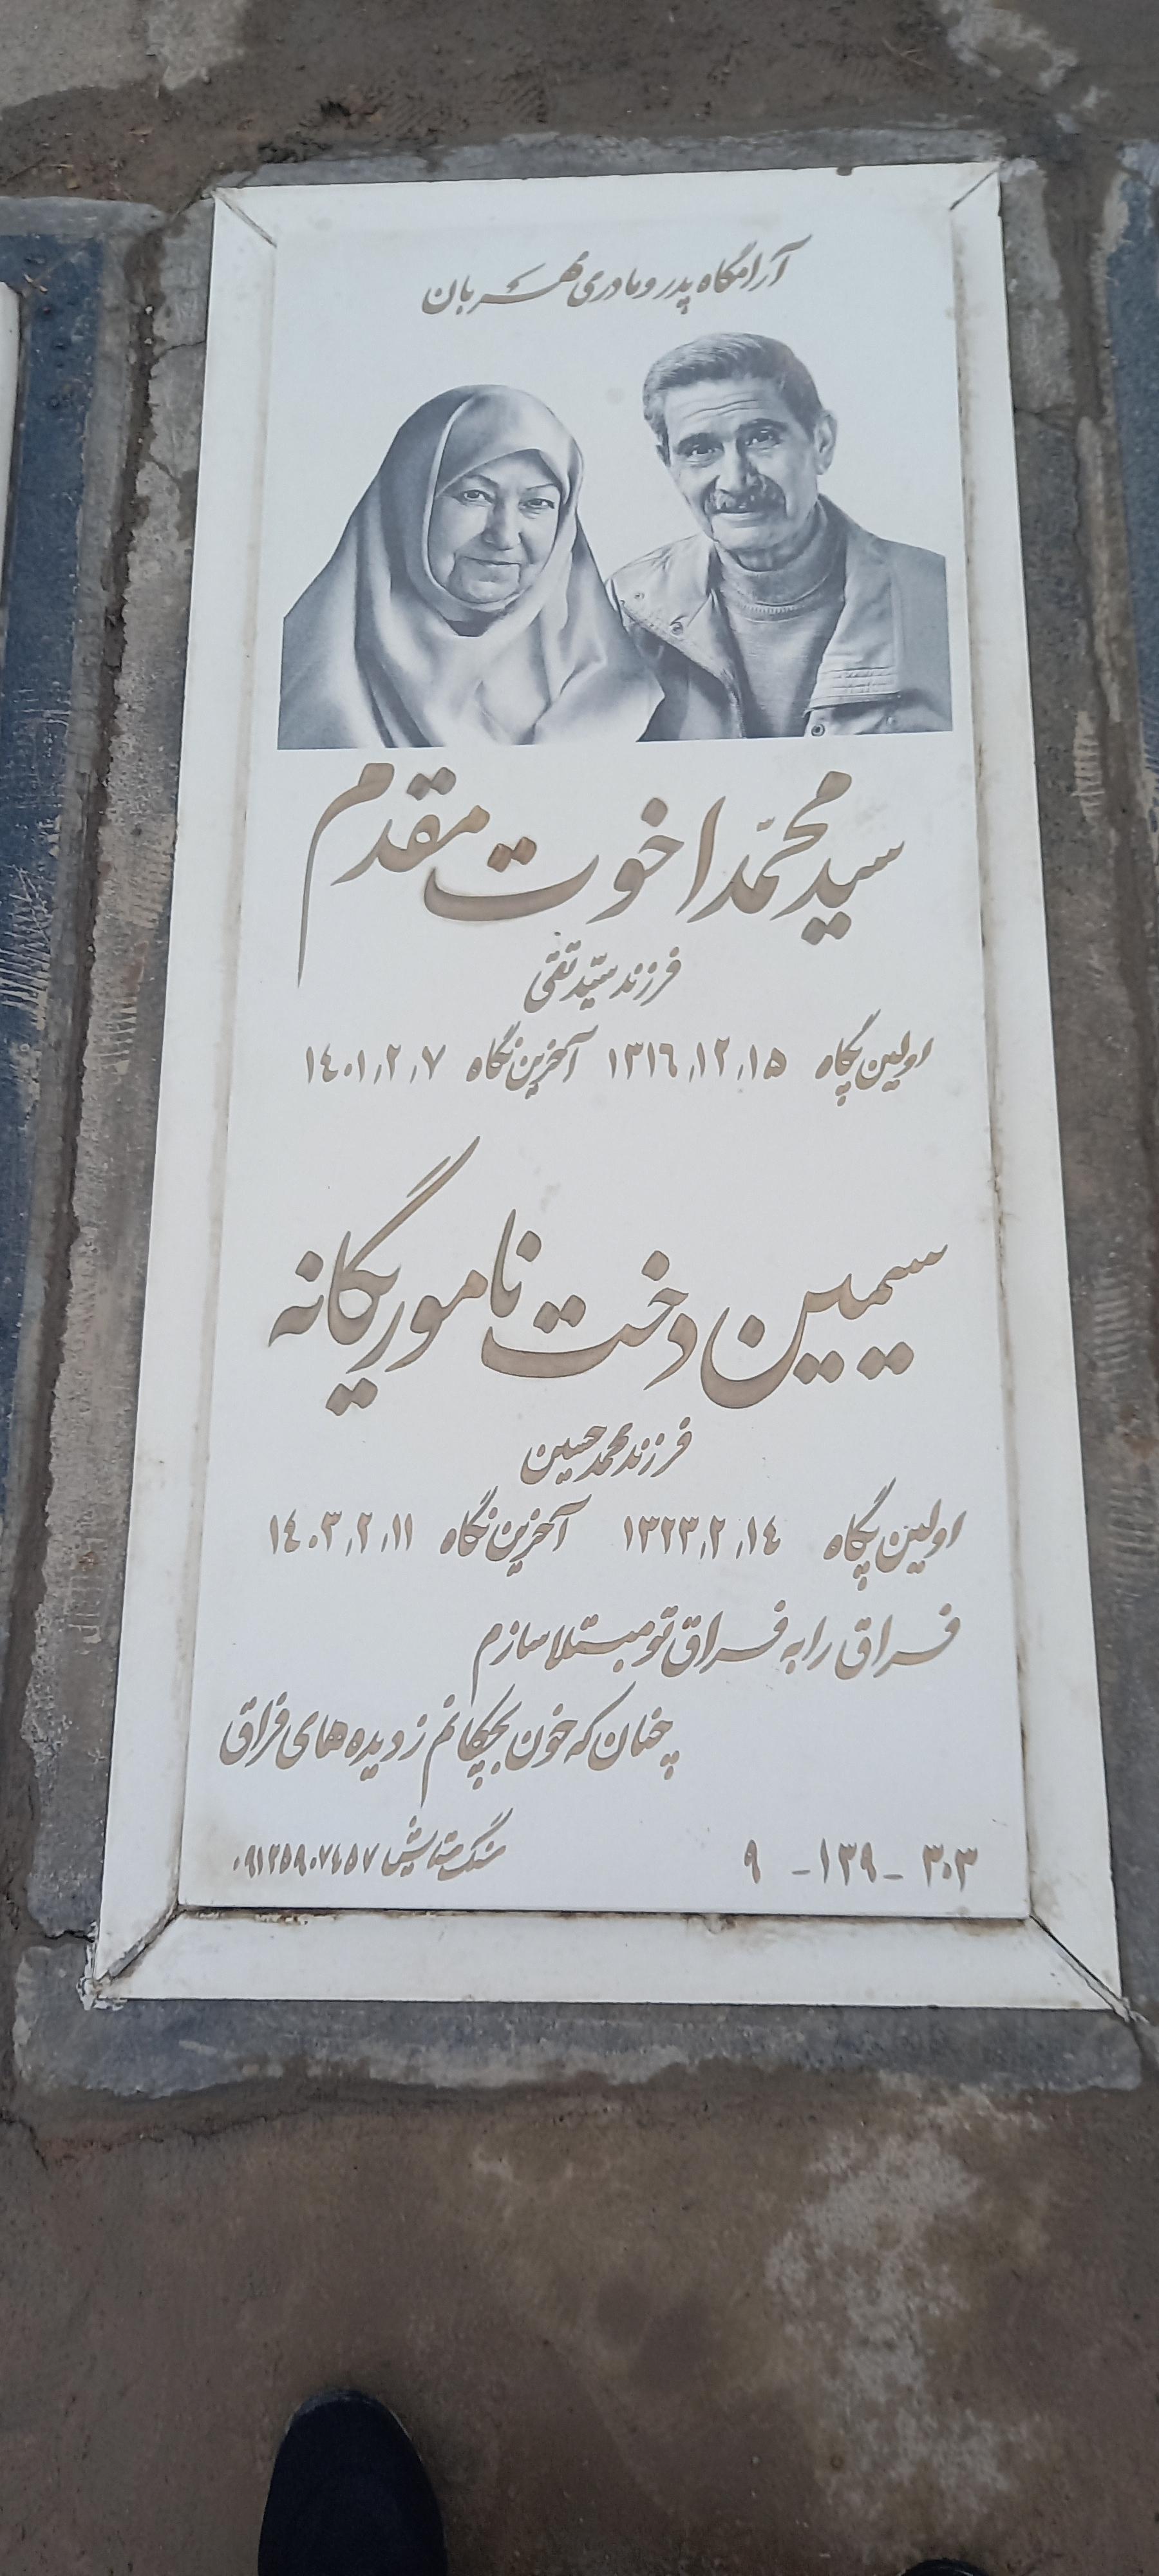 آرامگاه پدر و مادری مهربان
سید محمّد اخوت مقدم
فرزند سیّد تقی
اولین پگاه ۱۳۱۶,۱۲,۱۵ آخرین نگاه ۱۴۰۱,۲,۷
سیمین دخت نامور یگانه
فرزند محمد حسین
اولین پگاه ۱۳۲۳,۲,۱۴ آخرین نگاه ۱۴۰۳,۲,۱۱
فراق را به فراق تو مبتلا سازم
چنان که خون بچکانم ز دیده های فراق
۳۰۳ - ۱۳۹ - ۹
سنگ ستایش ۰۹۱۲۵۹۰۷۴۵۷